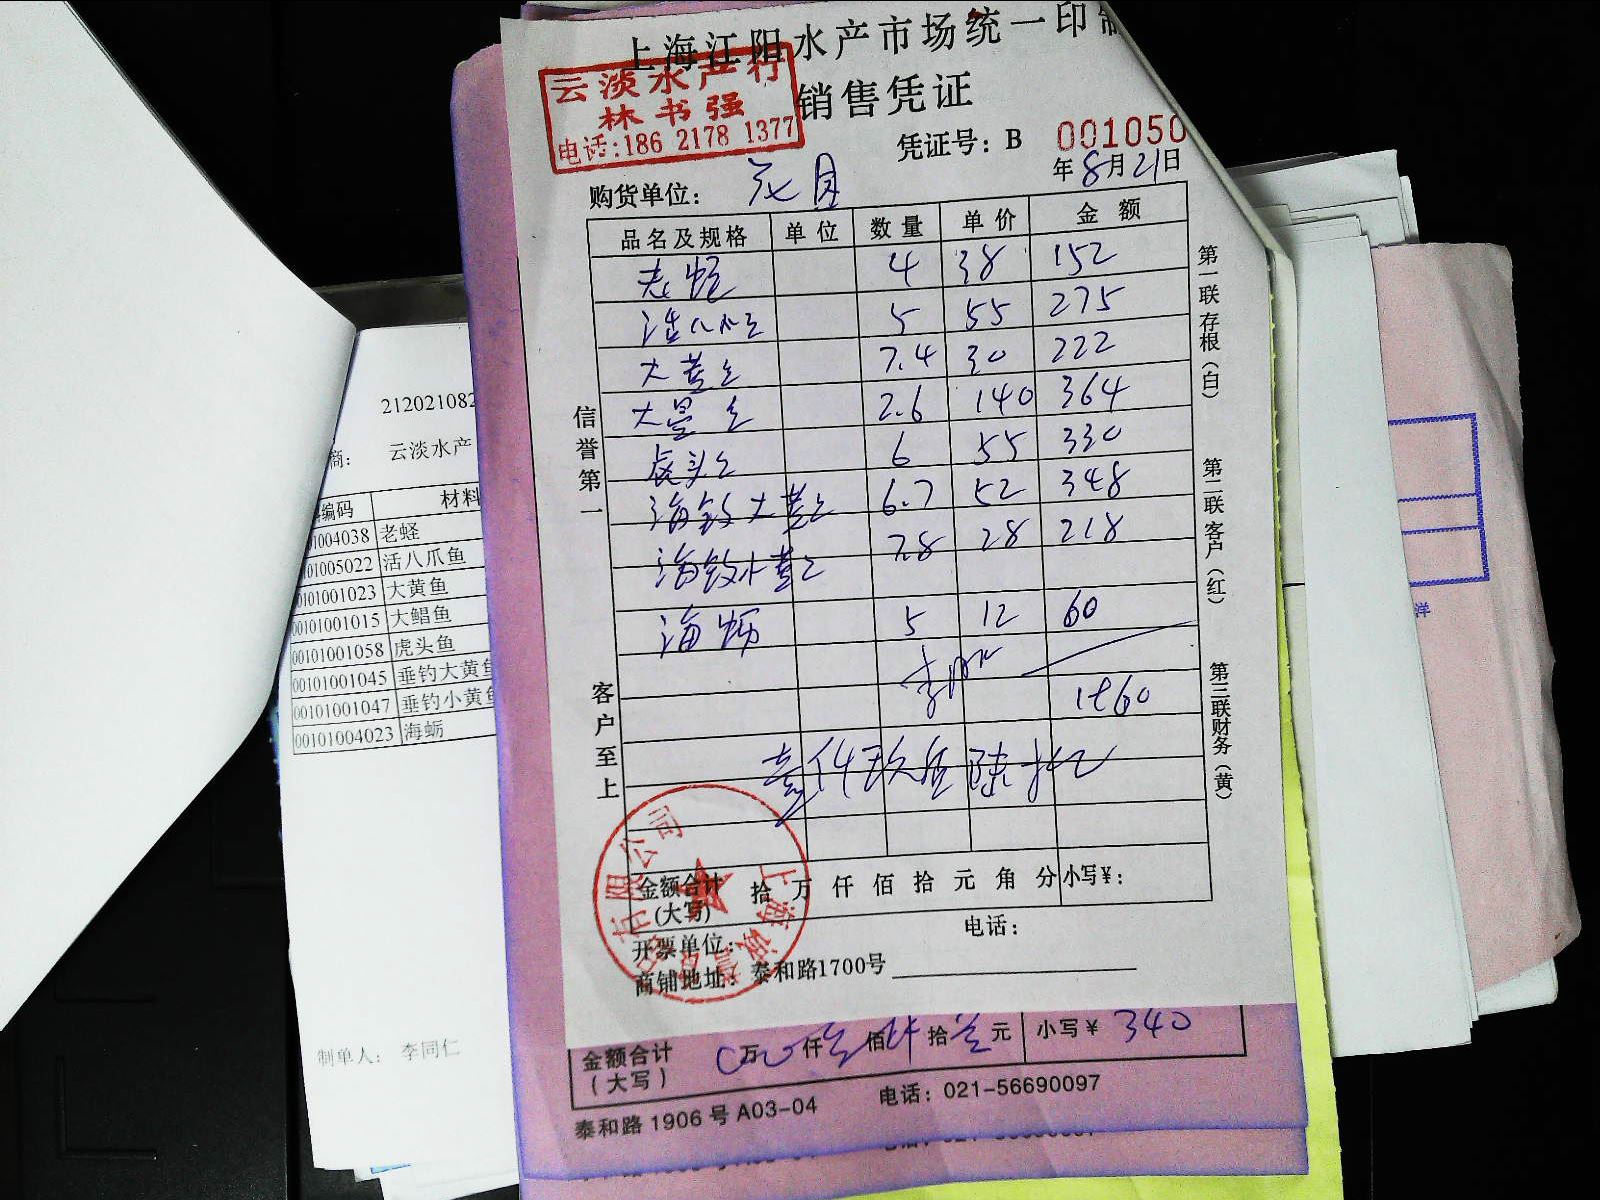 上海江阳水产市场统一印制
云淡水产行
林书强
电话:186 2178 1377
销售凭证
凭证号: B 001050
年8月21日
购货单位:
品名及规格 单位 数量 单价 金额
老蛏 4 38 152
活八爪鱼 5 55 275
大黄鱼 7.4 30 222
大鲳鱼 2.6 140 364
虎头鱼 6 55 330
海钓大黄鱼 6.7 52 348
海钓小黄鱼 7.8 28 218
海蛎 5 12 60
1960
壹仟玖佰陆拾元
金额合计(大写) 拾 万 仟 佰 拾 元 角 分 小写¥:
开票单位: 电话:
商铺地址: 泰和路1700号
信誉第一
客户至上
第一联存根(白)
第二联客户(红)
第三联财务(黄)
212021082
商: 云淡水产
编码 材料
01004038 老蛏
0101005022 活八爪鱼
00101001023 大黄鱼
00101001015 大鲳鱼
00101001058 虎头鱼
00101001045 垂钓大黄鱼
00101001047 垂钓小黄鱼
00101004023 海蛎
制单人: 李同仁
金额合计(大写) 万 仟 佰 拾 元 小写¥ 340
泰和路 1906 号 A03-04 电话: 021-56690097
洋